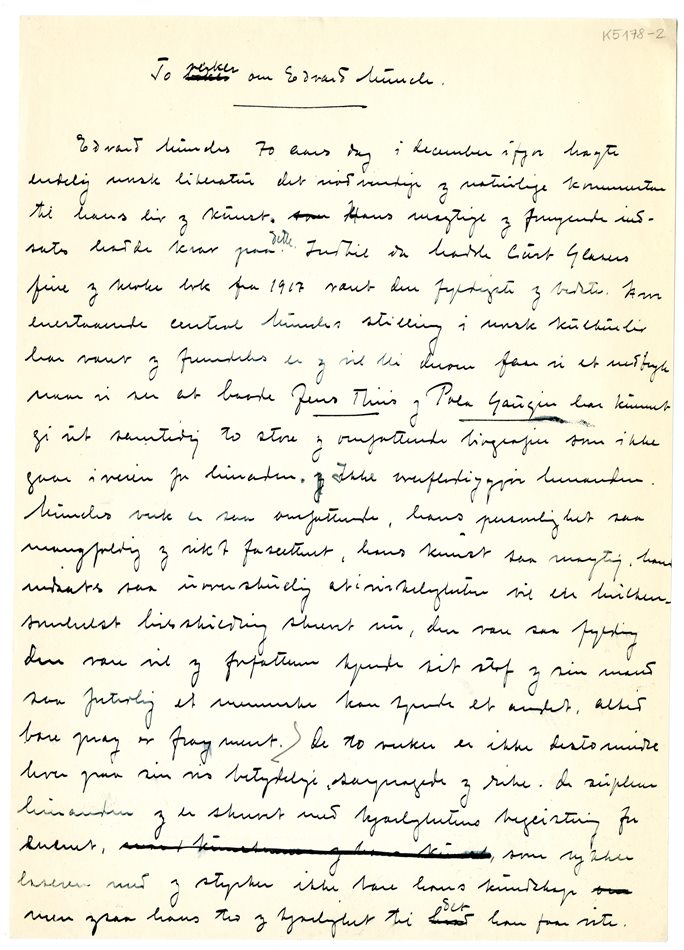 K5178-2
To verker om Edvard Munch.
Edvard Munchs 70 aars dag i december ifjor bragte
endelig norsk literatur det nødvendige og naturlige kommentar
til hans liv og kunst. Hans mægtige og fængende ind-
sats hadde krav paa dette. Indtil da hadde Curt Glasers
fine og kloke bok fra 1917 været den fyldigste og bedste. Hvor
enestaaende central Munchs stilling i norsk kulturliv
har været og fremdeles er og vil bli derom faar vi et indtryk
naar vi ser at baade Jens Thiis og Pola Gauguin har kunnet
gi ut samtidig to store og omfattende biografier som ikke
gaar i veien for hinanden. Ikke overflødiggjør hinanden.
Munchs verk er saa omfattende, hans personlighet saa
mangfoldig og rikt facettert, hans kunst saa mægtig, hans
indsats saa uoverskuelig at i virkeligheten vil en hvilken-
somhelst livsskildring skrevet nu, den være saa fyldig
den være vil og forfatteren kjende sit stof og sin mand
saa fortrolig et menneske kan kjende et andet, altid
bære præg av fragment. De to verker er ikke destomindre
hver paa sin vis betydelige, særprægede og rike. De suplerer
hinanden og er skrevet med kjærlighetens begeistring for
emnet, som rykker
læseren med og styrker ikke bare hans kundskap
men ogsaa hans tro og kjærlighet til det han faar vite.